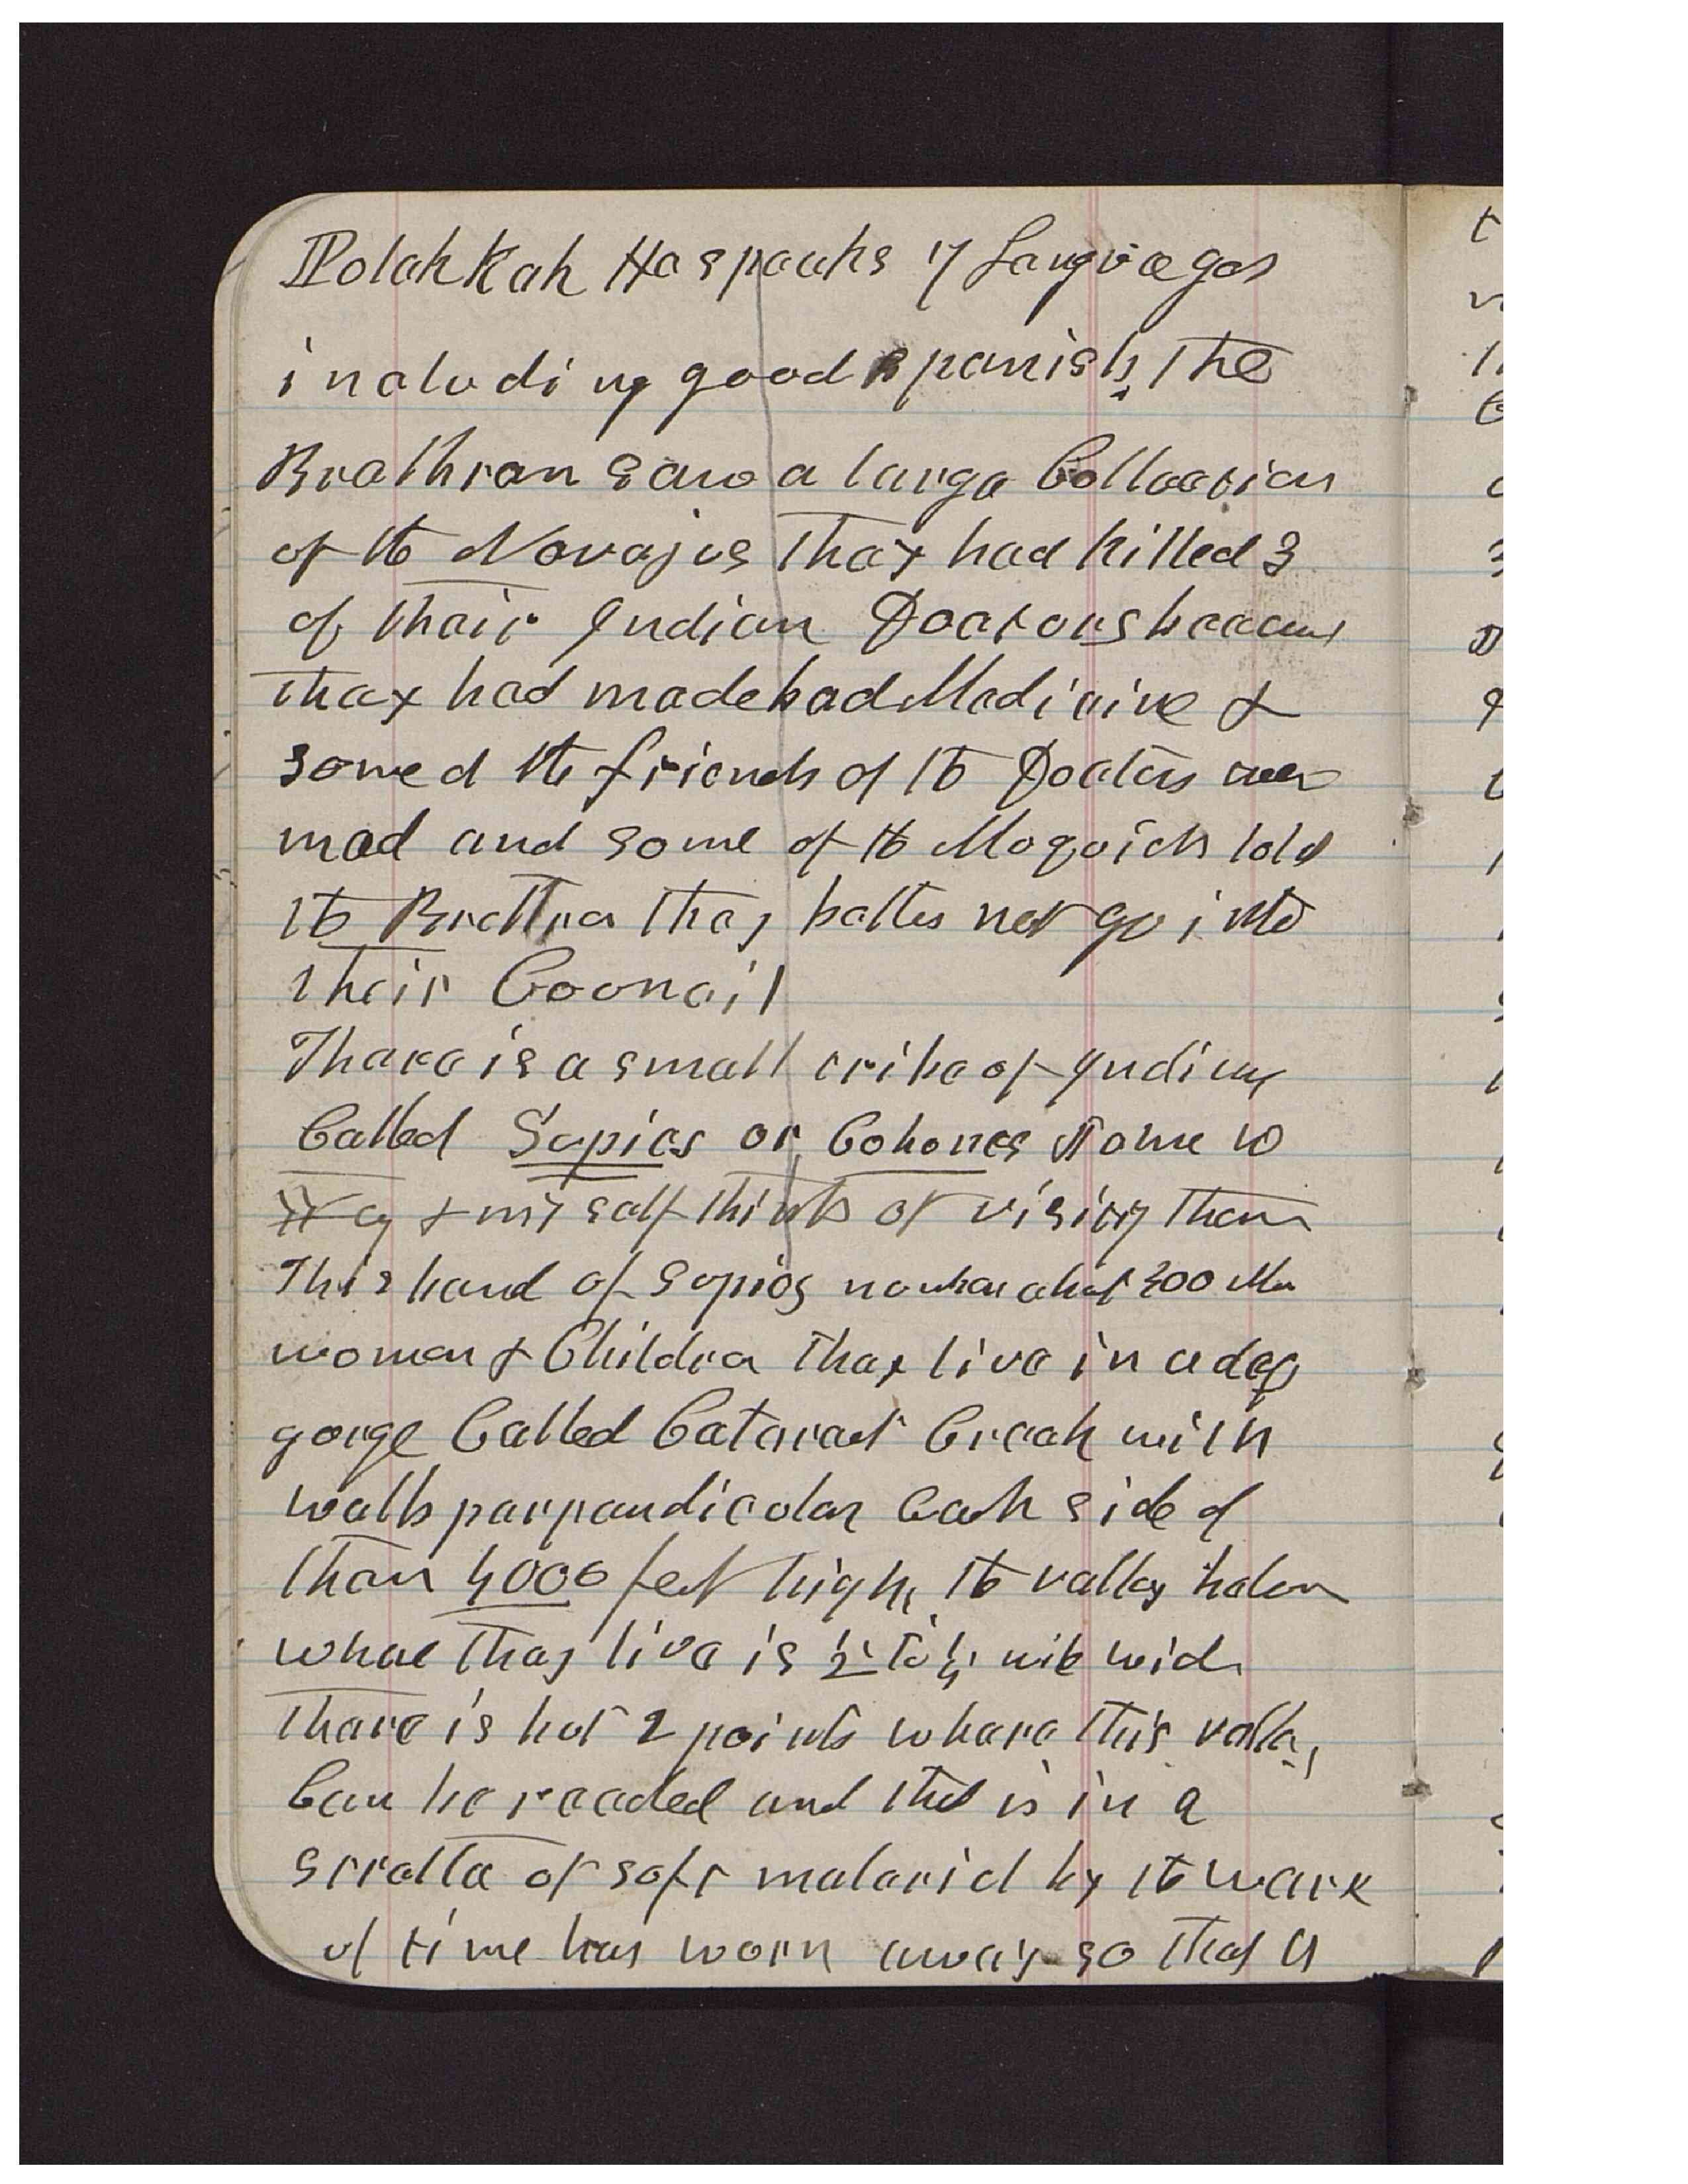 Polahkah He speaks 7 Languages
including good spanish, The
Brethren saw a large Collection
of the Navajos They had killed 3
of their Indian Doctors because
they had made bad Medicine &
some of the friends of the Doctors were
mad and some of the Moquich told
the Brethren they better not go into
their Council
There is a small tribe of Indians
Called Supies or Cohones Home
& myself thinks of visiting them
This band of Supies numbers about 200 Men
women & Children They live in a deep
gorge Called Cataract Creek with
walls perpendicular Each side of
them 4000 feet high, the valley below
whare they live is ½ to ¼ mile wide
There is but 2 points whare this valley
Can be reached and that is in a
stratta of soft material by the ware
of time has worn away so that a